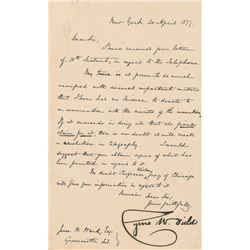 New York, 20 April 1877.
Dear Sir,
I have received your letter
of 18th instant, in regard to the Telephone.
My time is at present so much
occupied with several important matters
that I have no leisure to devote to
an examination into the merits of the
If it succeeds in doing all that its friends
claim for it, there is no doubt it will create
a revolution in telegraphy. I would
suggest that you obtain copies of what has
been printed in regard to it.
No doubt Professor Gray of Chicago
will give you information in regard to it.
I remain, dear Sir,
Yours faithfully,
Cyrus W. Field
Jesse W. Weik, Esq.
Greencastle